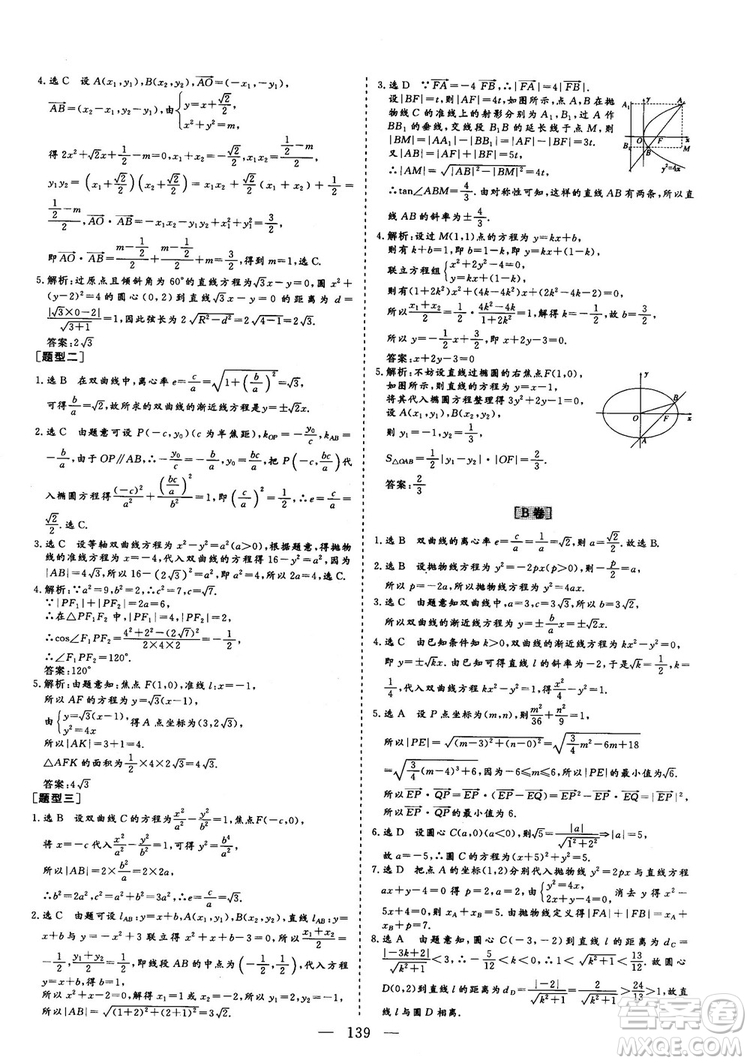 4.选C 设 A(x₁,y₁),B(x₂,y₂),AO→=(-x₁,-y₁),
AB→=(x₂-x₁,y₂-y₁),由{y=x+√2/2, x²+y²=1/2-m
得 2x²+√2x+1/2-1/2+m=0,x₁x₂=m/2,
y₁y₂=(x₁+√2/2)(x₂+√2/2)=m/2-m.
AO→·AB→=-x₁x₂+x₁²+y₁²-y₁y₂=3/2
即 AO→·AB→=1/2-m-m/2+m/2=3/2,m=-1,选C.
5.解析:过原点且倾斜角为 60°的直线方程为√3x-y=0,圆 x²+
(y-2)²=4 的圆心(0,2)到直线√3x-y=0 的距离为 d=
|√3×0-2|/√(3+1)=1,因此弦长为 2√(R²-d²)=2√(4-1)=2√3.
答案:2√3
[题型二]
1.选B 在双曲线中,离心率 e=c/a=√(1+(b/a)²)=√3,
可得 b/a=√2,故所求的双曲线的渐近线方程是 y=±√2x.
2.选C 由题意可设 P(-c,y₀)(c 为半焦距),k_OP=-y₀/c,k_AB=
-b/a,由于 OP∥AB,∴-y₀/c=-b/a,y₀=bc/a,把 P(-c,bc/a)代
入椭圆方程得(-c)²/a²+(bc/a)²/b²=1,∴(c/a)²=1/2,∴e=c/a=√2/2.
3.选C 设等轴双曲线方程为 x²-y²=a²,根据题意,得抛物
线的准线方程为 x=-4,代入双曲线的方程得 16-y²=a²,因为
|AB|=4√3,所以 16-(2√3)²=a²,即 a²=4,所以 2a=4,所以选C.
4.解析:∵a²=9,b²=2,∴c=√(a²-b²)=√(9-2)=√7,
∵|PF₁|+|PF₂|=2a=6,
∴|PF₁|=4,∴|PF₂|=6-|PF₁|=2,
∴cos∠F₁PF₂=(4²+2²-(2√7)²)/(2×4×2)=-1/2,
∴∠F₁PF₂=120°.
答案:120°
5.解析:由题意知:焦点 F(1,0),准线 l:x=-1,
所以 AF 的方程为 y=√3(x-1),
由{y=√3(x-1), y²=4x 得 A 点坐标为(3,2√3),
所以|AK|=3+1=4,
△AFK 的面积为 1/2×4×2√3=4√3.
答案:4√3
[题型三]
1.选B 设双曲线 C 的方程为 x²/a²-y²/b²=1,焦点 F(-c,0),
将 x=-c 代入 x²/a²-y²/b²=1 可得 y²=b⁴/a²,
所以|AB|=2×b²/a=2×2a,
∴b²=2a²,c²=a²+b²=3a²,∴e=c/a=√3.
2.选C 由题可设 l_AB:y=x+b,A(x₁,y₁),B(x₂,y₂),直线 l_AB:y=
x+b 与 y=-x²+3 联立得 x²+x+b-3=0,∴Δ=1-4(b-3)>0,x₁+x₂
=-1,(y₁+y₂)/2=-1/2+b,即线段 AB 的中点为(-1/2,-1/2+b),代入
x+y=0 的方程,得 b=1.
∴x²+x-2=0,∴|AB|=√(1+1²)·√((-1)²-4×(-2))=3√2.
3.选D ∵FA→=-4FB→,∴|FA→|=4|FB→|.
设|BF|=t,则|AF|=4t,如图所示,点 A、B 在抛
物线 C 的准线上的射影分别为 A₁、B₁,过 A 作
BB₁ 的垂线,交线段 B₁B 的延长线于点 M,则
|BM|=|AA₁|-|BB₁|=|AF|-|BF|=3t.
又|AB|=|AF|+|BF|=5t,
∴|AM|=√(|AB|²-|BM|²)=4t,
∴tan∠ABM=4/3.由对称性可知,这样的直线 AB 有两条,所以直
线 AB 的斜率为±4/3.
4.解析:设过 M(1,1)点的方程为 y=kx+b,
则有 k+b=1,即 b=1-k,即 y=kx+(1-k),
联立方程组{x²+2y²=4, y=kx+(1-k),
则有(1+2k²)x²+(4k-4k²)x+(2k²-4k-2)=0,
所以(x₁+x₂)/2=1/2·(4k²-4k)/(1+2k²)=1,
所以 k=-1/2,b=3/2,所以 y=-1/2x+3/2,即 x+2y-3=0.
答案:x+2y-3=0
5.解析:不妨设直线过椭圆的右焦点 F(1,0),
则直线方程为 y=x-1.
将其代入椭圆方程整理得 3y²+2y-1=0.
设 A(x₁,y₁),B(x₂,y₂).
则 y₁=-1,y₂=1/3.
S△OAB=1/2|y₁-y₂|·|OF|=2/3.
答案:2/3
[B卷]
1.选B 双曲线的离心率 e=c/a=√2/a=√3,则 a=√2/√3.故选B.
2.选B 设抛物线的方程为 y²=2px(p>0),则-p/2=-a,
所以 p=2a,所以抛物线方程为 y²=4ax.
3.选C 由题意知双曲线的渐近线方程为 y=±b/a x=±√3/a x=
±√3/3x,∴a=3,c²=a²+b²=12,∴e=c/a=2√3/3.
4.选C 由已知条件知 k>0,双曲线的渐近线方程为 y=
±√k x.又由已知可得直线 l 的斜率为-1/2,∴√k×(-1/2)=-1,
即 k=4.代入双曲线方程 kx²-y²=1,易得 e=√5.
5.选A 设 P 点坐标为(m,n),则 m²/36+n²/9=1,
所以|PE|=√((m-3)²+(n-0)²)=√(3/4m²-6m+18)
=√(3/4(m-4)²+6),因为-6≤m≤6,所以|PE|的最小值为√6,
所以 EP→·QP→=EP→·(EP→-EQ→)=EP→²-EP→·EQ→=|EP→|²,
所以 EP→·QP→的最小值为 6.
6.选D 设圆心 C(a,0)(a<0),则√5=|a|/√(1²+2²)⇒|a|=5,
∴a=-5,∴圆 C 的方程为(x+5)²+y²=5.
7.选D 把点 A(1,2)的坐标代入抛物线 y²=2px 与直线方程
ax+y-4=0 得 p=2,a=2,由{y²=4x, 2x+y-4=0,消去 y 得 x²-
5x+4=0,则 x_A+x_B=5.由抛物线定义得|FA|+|FB|=x_A+
x_B+p=7.
8.选A 由题意知:圆心 C(-3,-1)到直线 l 的距离为 d_C
=|-3k-2+1|/√(k²+1)=|-3k-1|/√(k²+1)<1⇒-3/4<k<0,从而圆 D 的圆心
D(2,0)到直线 l 的距离为 d_D=|2k-2|/√(k²+1)
所以直线 l 与圆 D 相离.
A₁
y
A
B₁
O
B
F
M
x
y
B
O
F
x
A
— 139 —
答案圈